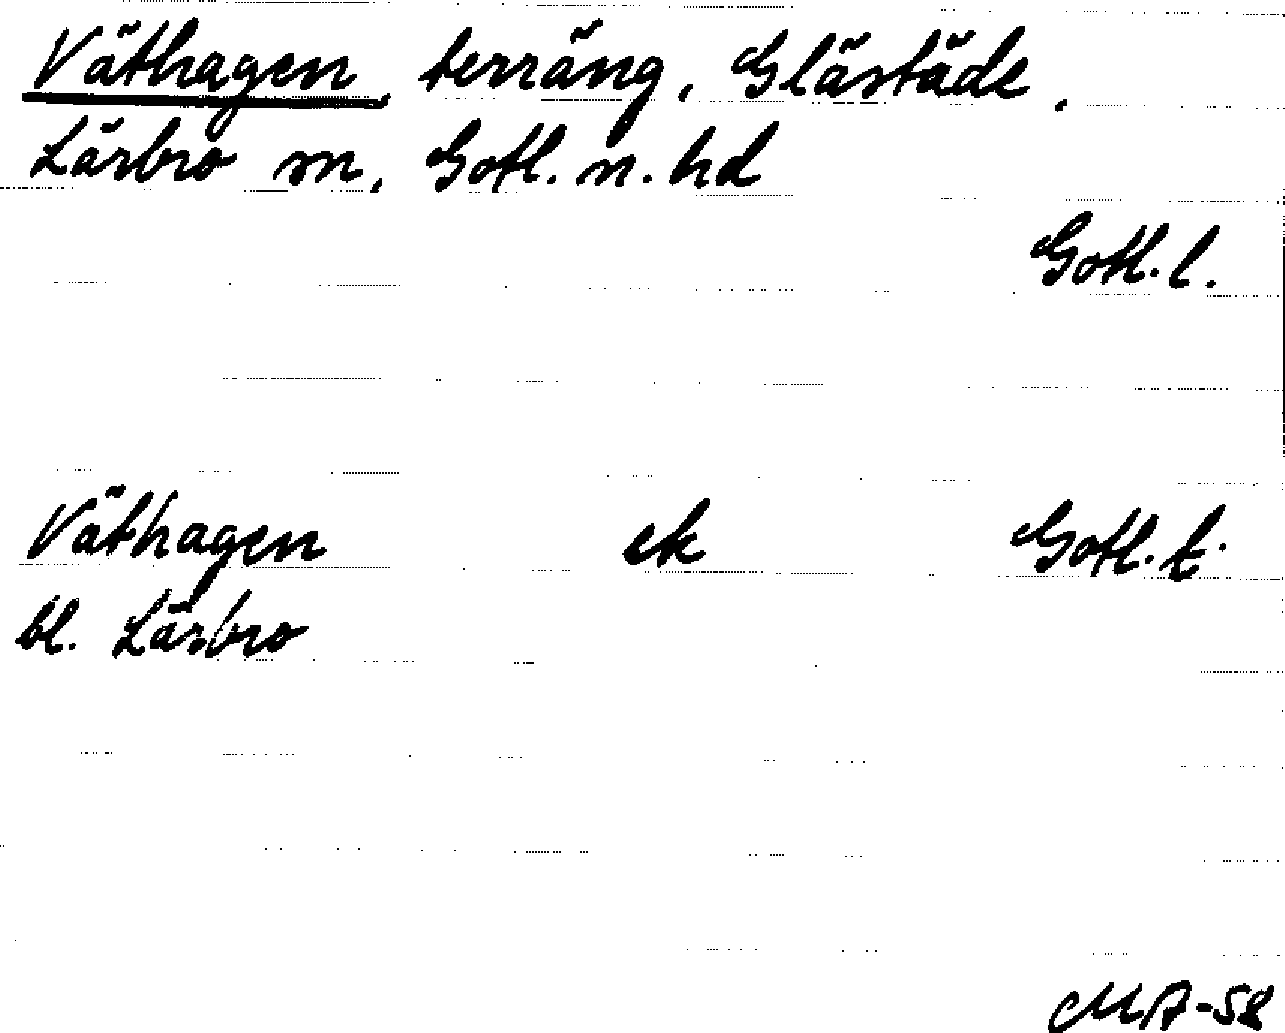 Väthagen, terräng, Glästäde,
Lärbro sn, Gotl. n. hd
Gotl. l.
Väthagen ek Gotl. t.
bl. Lärbro
MA-58